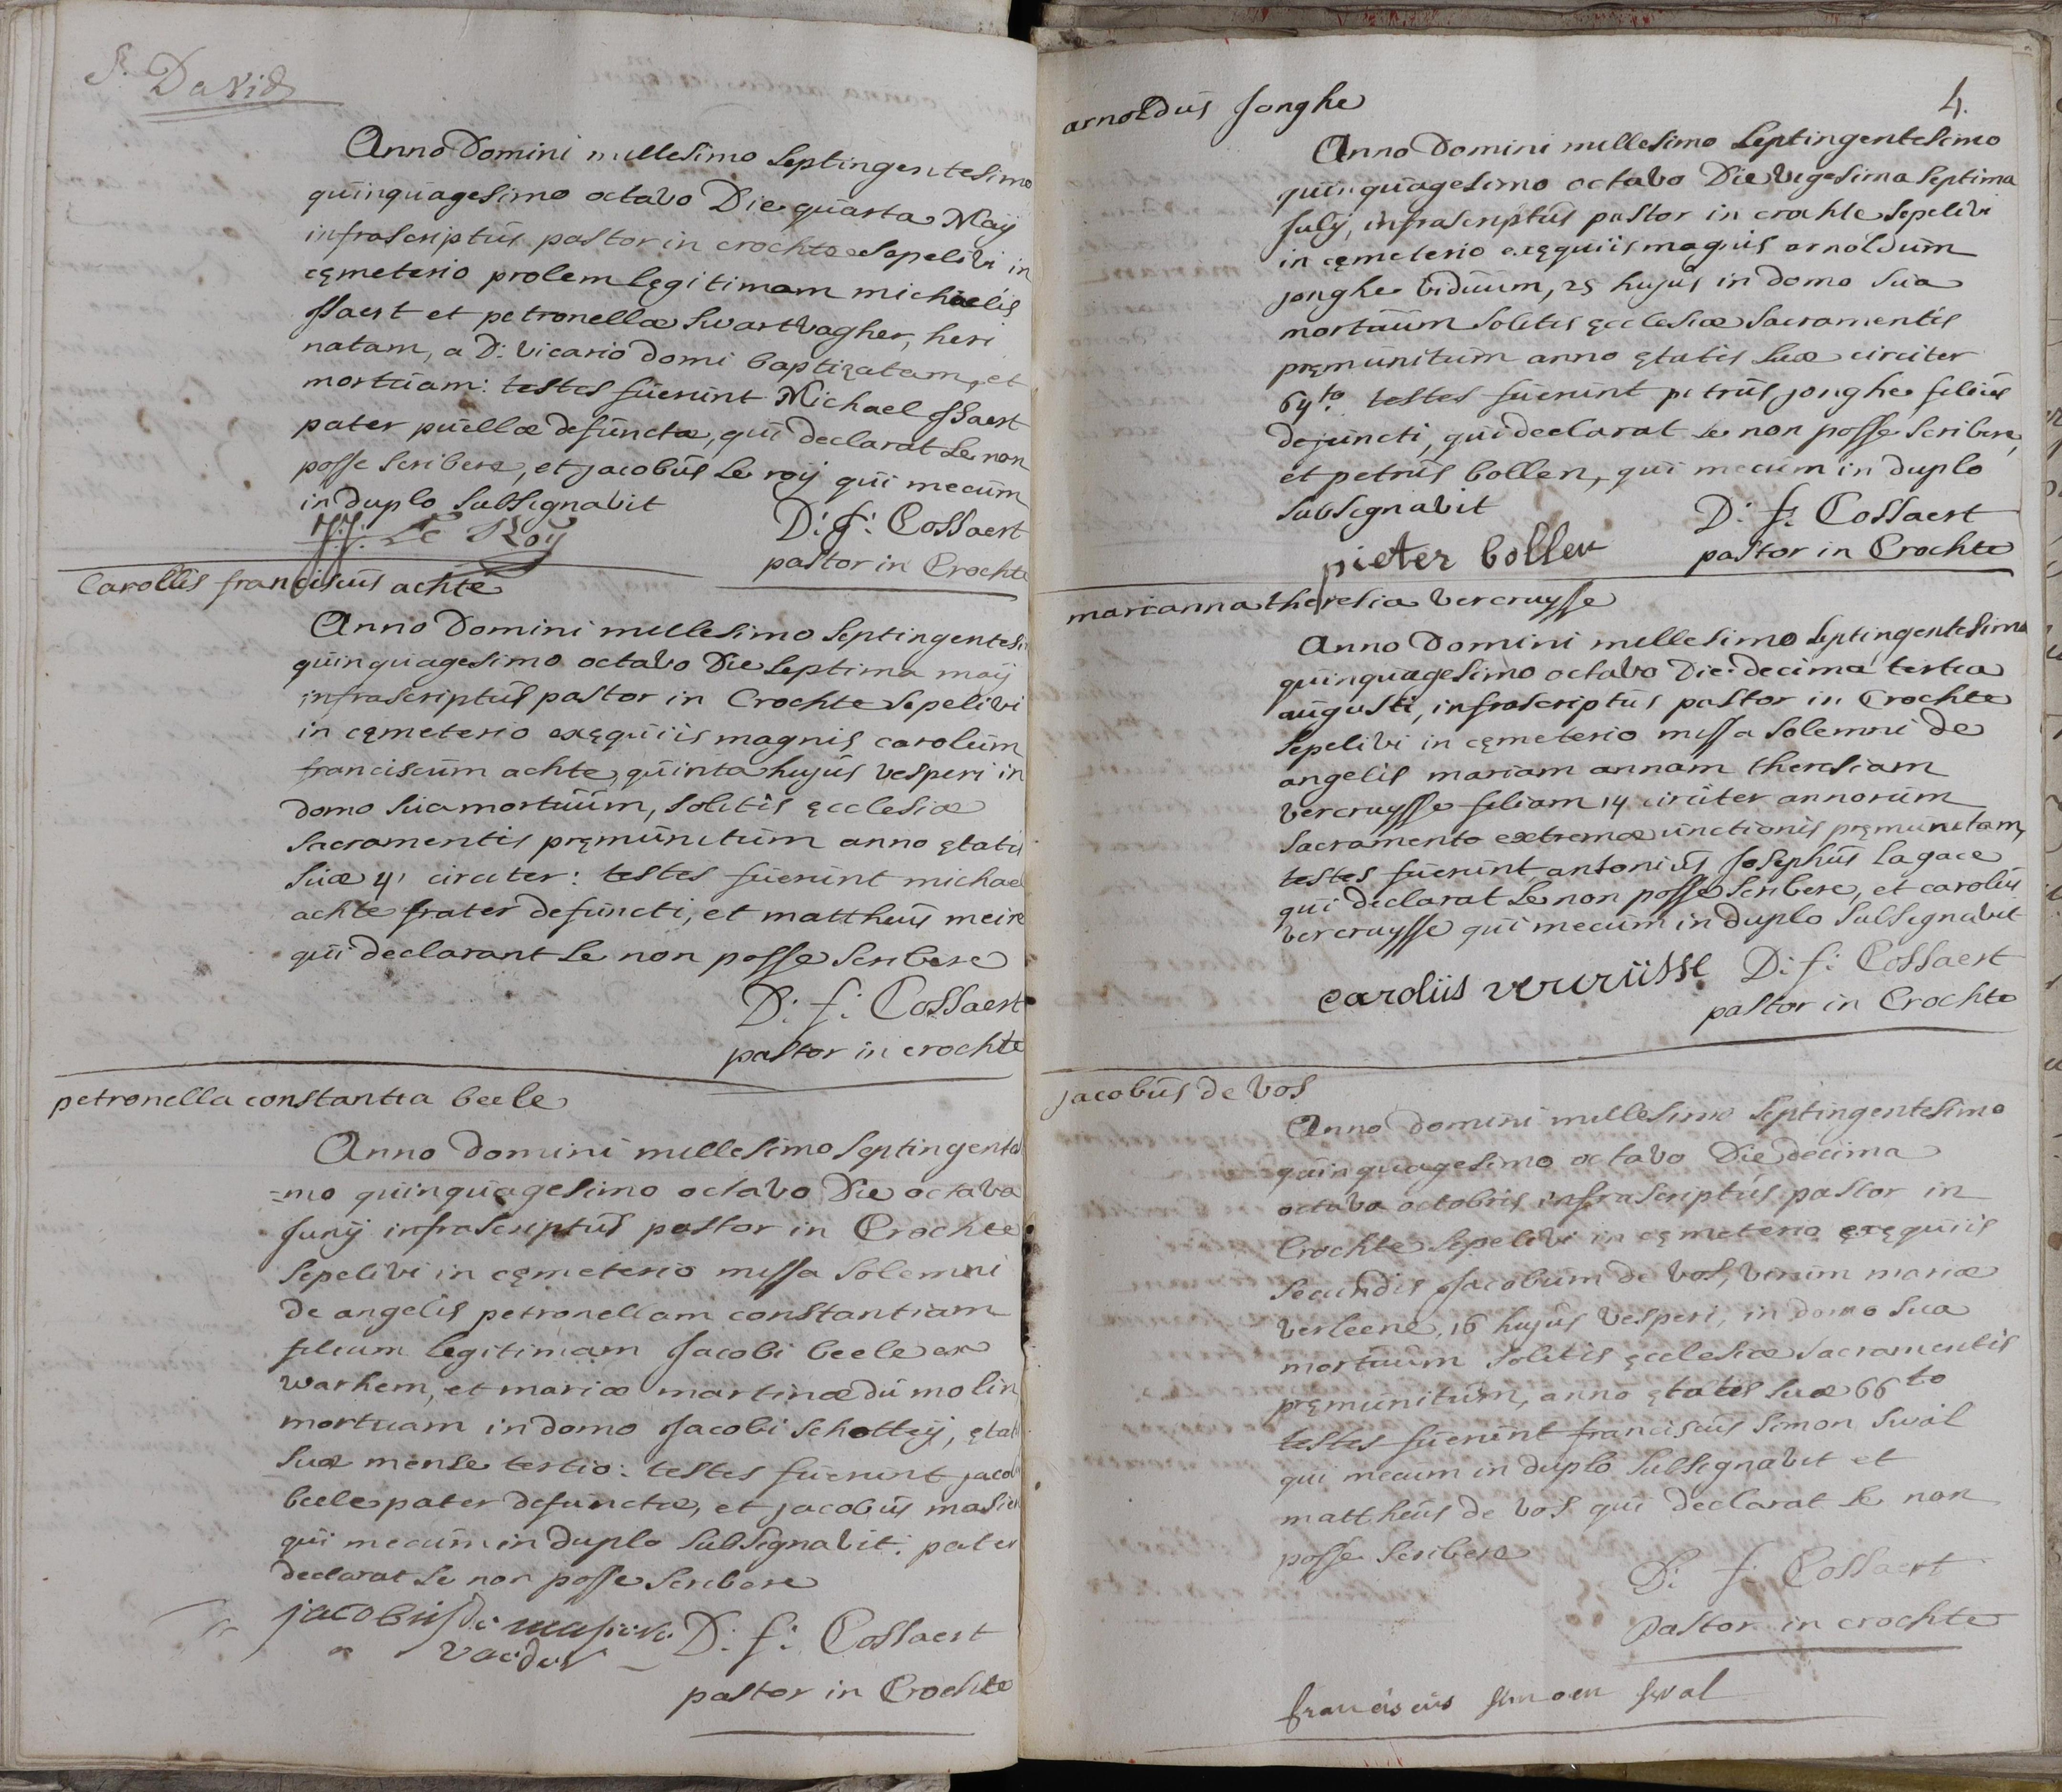 S. David
Anno Domini millesimo septingentesimo
quinquagesimo octavo Die quarta Maÿ
infrascriptus pastor in crochte sepelivi in
cęmeterio prolem lęgitimam michaelis
Staert et petronellæ Swartvagher, heri
natam, a D: vicario domi baptizatam, et
mortuam: testes fuerunt Michael Staert
pater puellæ defunctæ, qui declarat se non
posse scribere, et jacobus le roÿ qui mecum
in duplo subsignavit
J: Le Roÿ
D: f: Cossaert
pastor in Crochte
Carolus franciscus achte
Anno Domini millesimo septingentesi
quinquagesimo octavo Die septima maÿ
infrascriptus pastor in Crochte sepelivi
in cęmeterio exęquiis magnis carolum
franciscum achte, quinta hujus vesperi in
domo sua mortuum, solitis ęcclesiæ
sacramentis pręmunitum anno ętatis
suæ 41 circiter: testes fuerunt michael
achte frater defuncti, et mattheus meire
qui declarant se non posse scribere
D: f: Cossaert
pastor in crochte
petronella constantia beele
Anno Domini millesimo septingentesi
=mo quinquagesimo octavo Die octava
Junÿ infrascriptus pastor in Crochte
sepelivi in cęmeterio missa solemni
de angelis petronellam constantiam
filiam legitimam Jacobi beele ex
warhem, et mariæ martinæ du molin
mortuam in domo Jacobi schottÿ, ętat
suæ mense tertio: testes fuerunt jacob
beele pater defunctæ, et jacobus
qui mecum in duplo subsignavit: pater
declarat se non posse scribere
jacobus
D: f: Cossaert
pastor in Crochte
4.
arnoldus Jonghe
Anno Domini millesimo septingentesimo
quinquagesimo octavo Die vigesima septima
Julÿ, infrascriptus pastor in crochte sepelivi
in cęmeterio exęquiis magnis arnoldum
jonghe viduum, 25 hujus in domo sua
mortuum solitis ęcclesiæ sacramentis
pręmunitum anno ętatis suæ circiter
64to. testes fuerunt petrus jonghe filius
defuncti, qui declarat se non posse scribere,
et petrus bollen, qui mecum in duplo
subsignavit
D: f: Cossaert
pieter bollen
pastor in Crochte
marianna theresia vercruysse
Anno Domini millesimo septingentesimo
quinquagesimo octavo Die decima tertia
augusti, infrascriptus pastor in Crochte
sepelivi in cęmeterio missa solemni de
angelis mariam annam theresiam
vercruysse filiam 14 circiter annorum
sacramento extremæ unctionis pręmunitam,
testes fuerunt antonius Josephus lagace
qui declarat se non posse scribere, et carolus
vercruysse qui mecum in duplo subsignavit
carolus vercrüsse
D: f: Cossaert
pastor in Crochte
jacobus de vos
Anno domini millesimo septingentesimo
quinquagesimo octavo Die decima
octava octobris infrascriptus pastor in
Crochte sepelivi in cęmeterio exęquiis
secundis Jacobum de vos, virum mariæ
verleene, 16 hujus vesperi, in domo sua
mortuum solitis ęcclesiæ sacramentis
pręmunitum, anno ętatis suæ 66to
testes fuerunt franciscus simon swal
qui mecum in duplo subsignavit et
mattheus de vos qui declarat se non
posse scribere
D: f: Cossaert
pastor in crochte
franciscus simoen swal